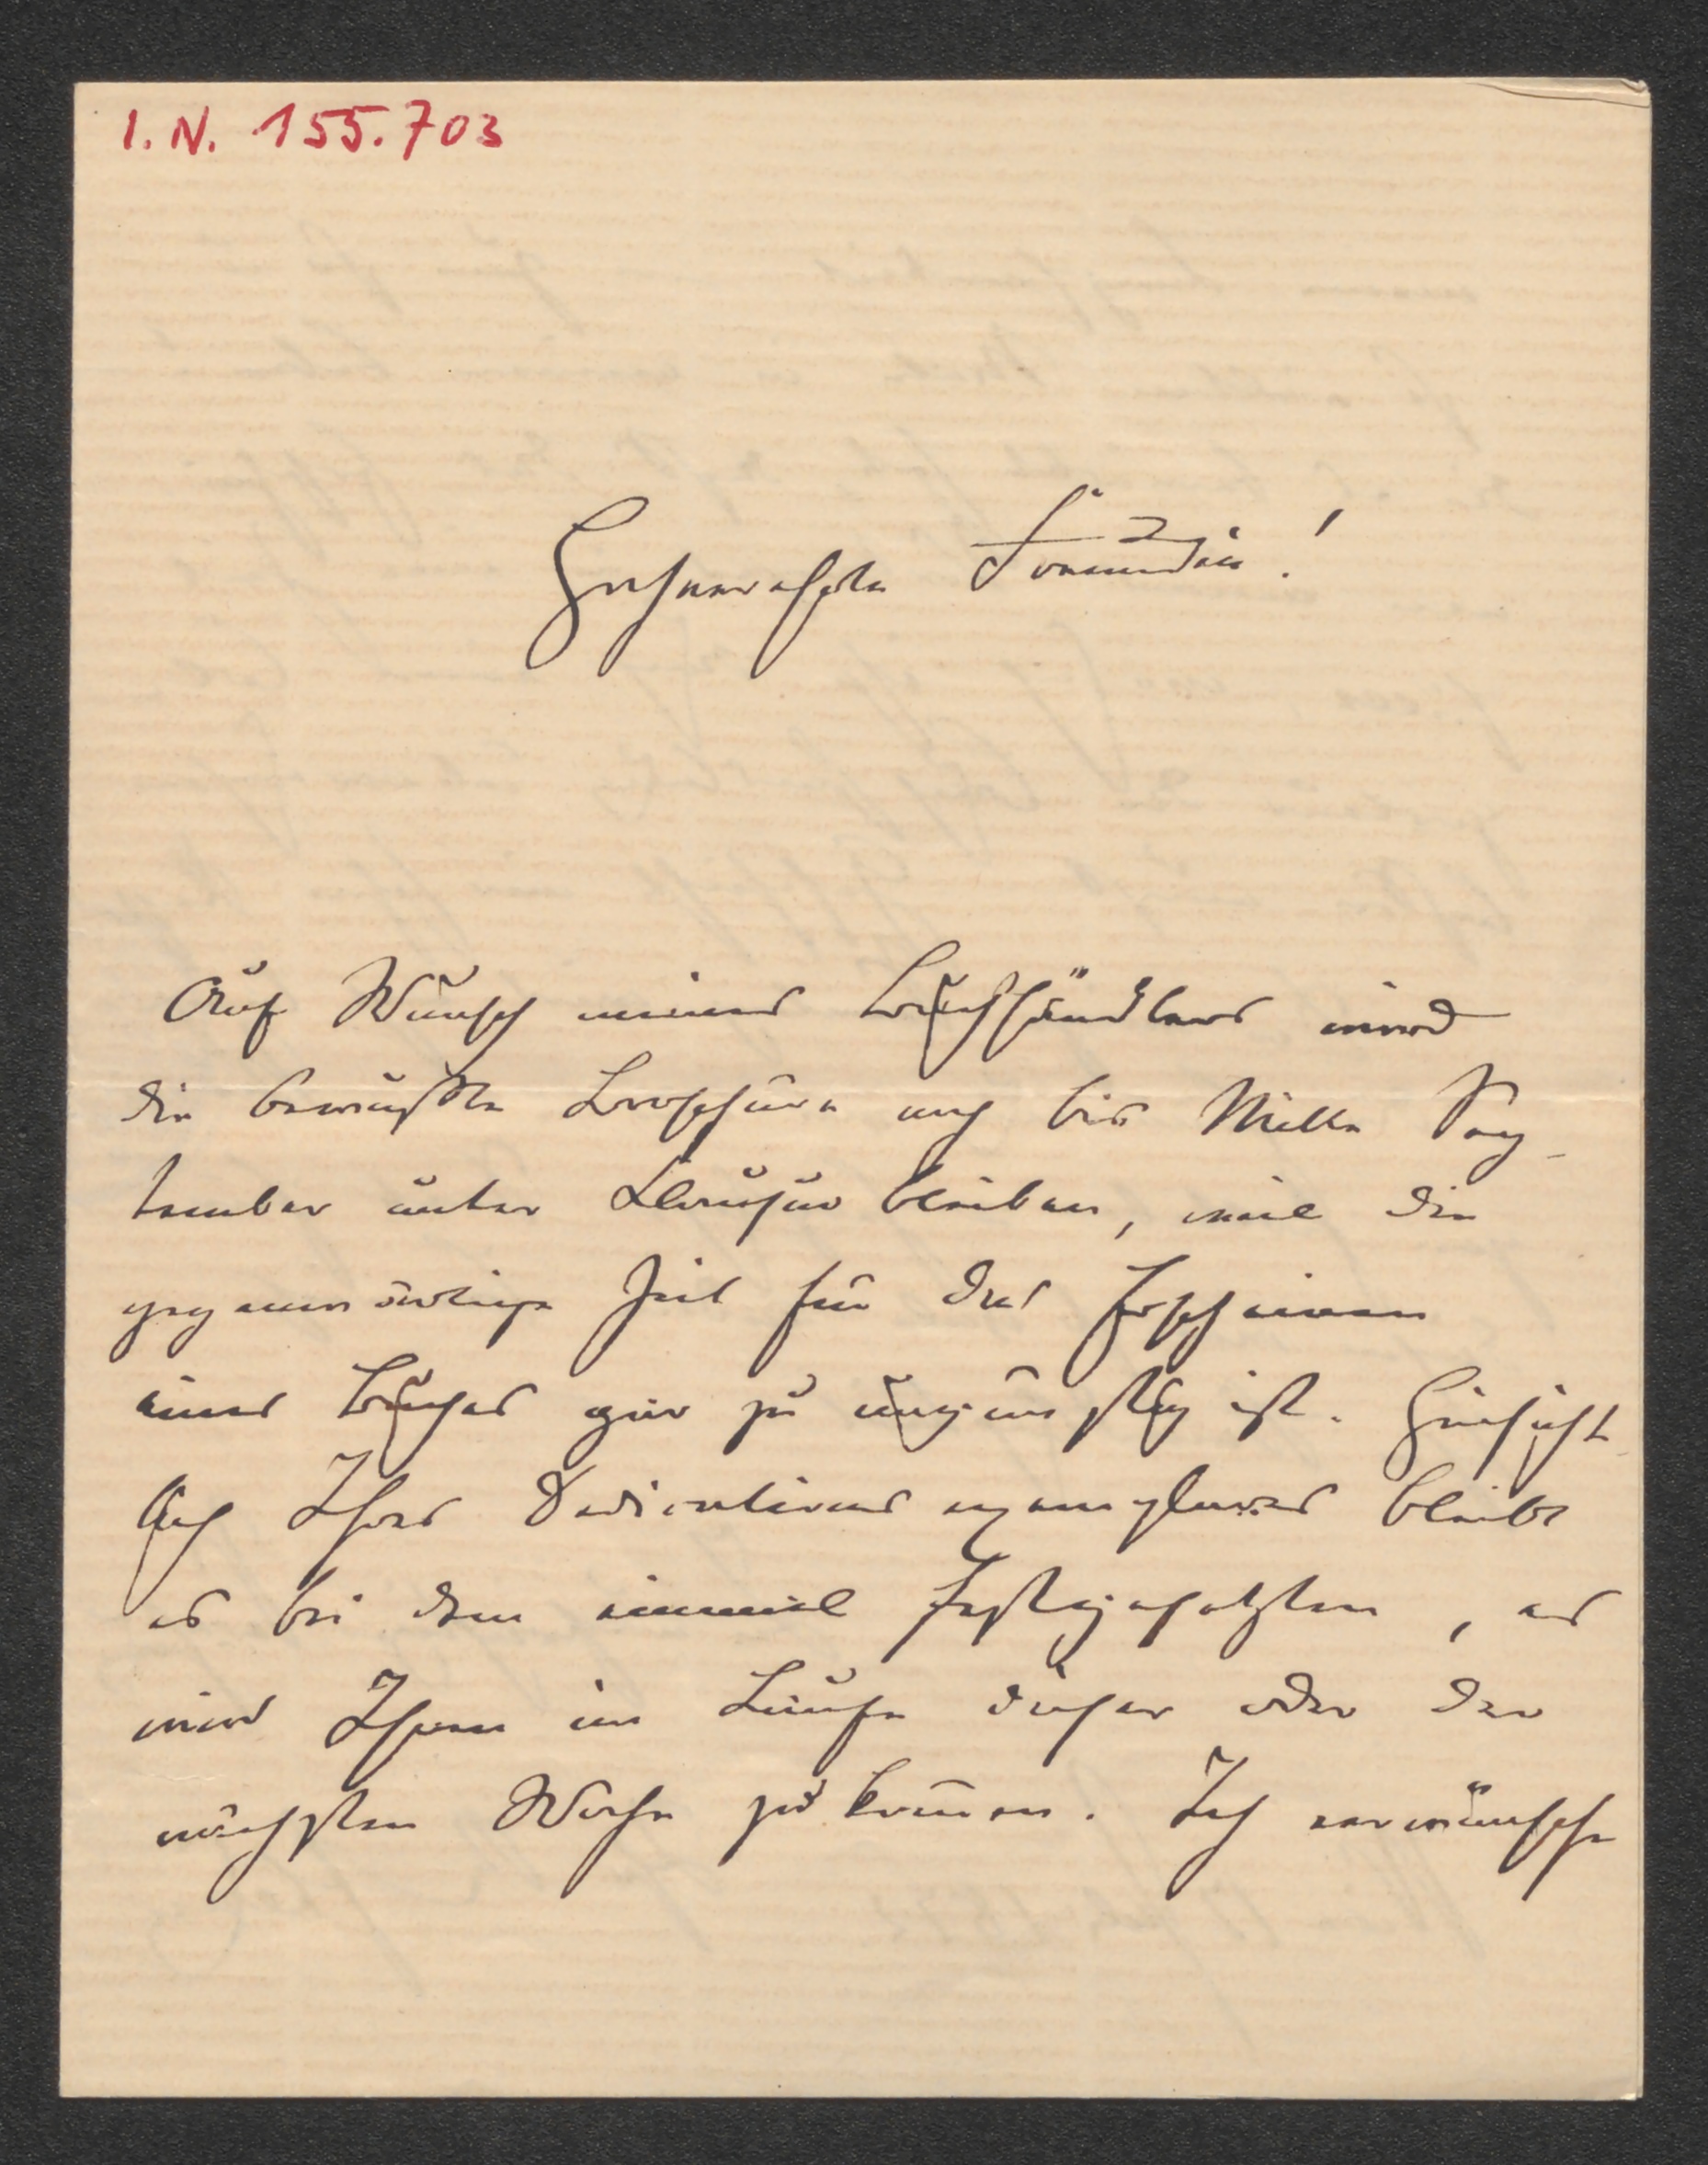 I. N. 155.703
Hochverehrte Freundin!
Auf Wunsch meines Buchhändlers wird
die bewußte Broschüre noch bis Mitte Sep-
tember unter Clausur bleiben, weil die
gegenwärtige Zeit für das Erscheinen
eines Buches gar zu ungünstig ist. Hinsicht-
lich Ihres Dedicationsexemplares bleibt
es bei dem einmal Festgesetzten, es
wird Ihnen im Laufe dieser oder der
nächsten Woche zukommen. Ich verwünsche